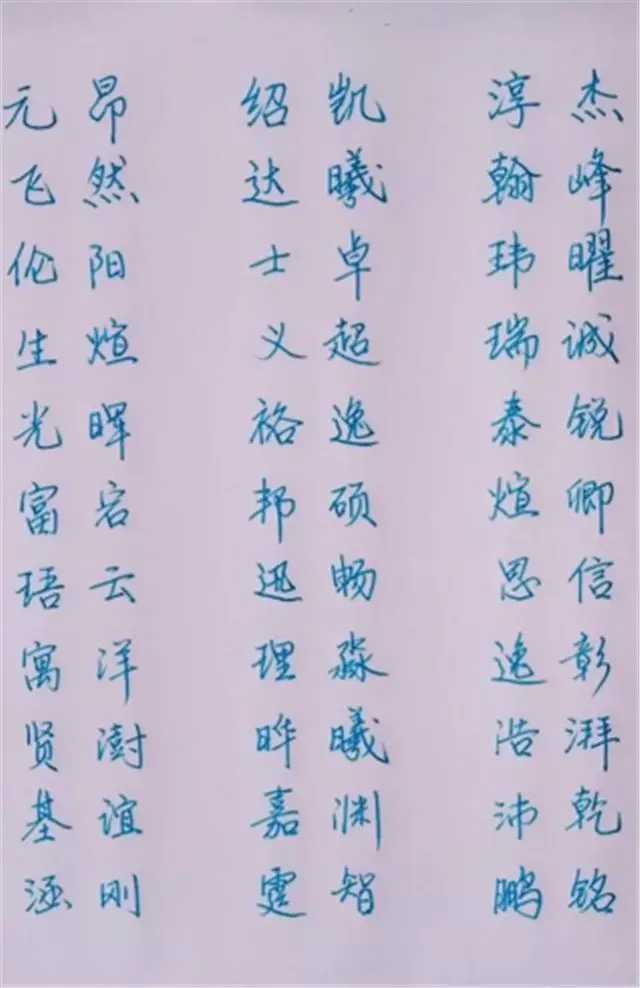 元昂 绍凯 淳杰
飞然 达曦 翰峰
伦阳 士卓 玮曜
生煊 义超 瑞诚
光晖 裕逸 泰锐
富宕 邦硕 煊卿
珸云 迅畅 思信
寓洋 理淼 逸彰
贤澍 晔曦 浩湃
基谊 嘉渊 沛乾
涵刚 霆智 鹏铭